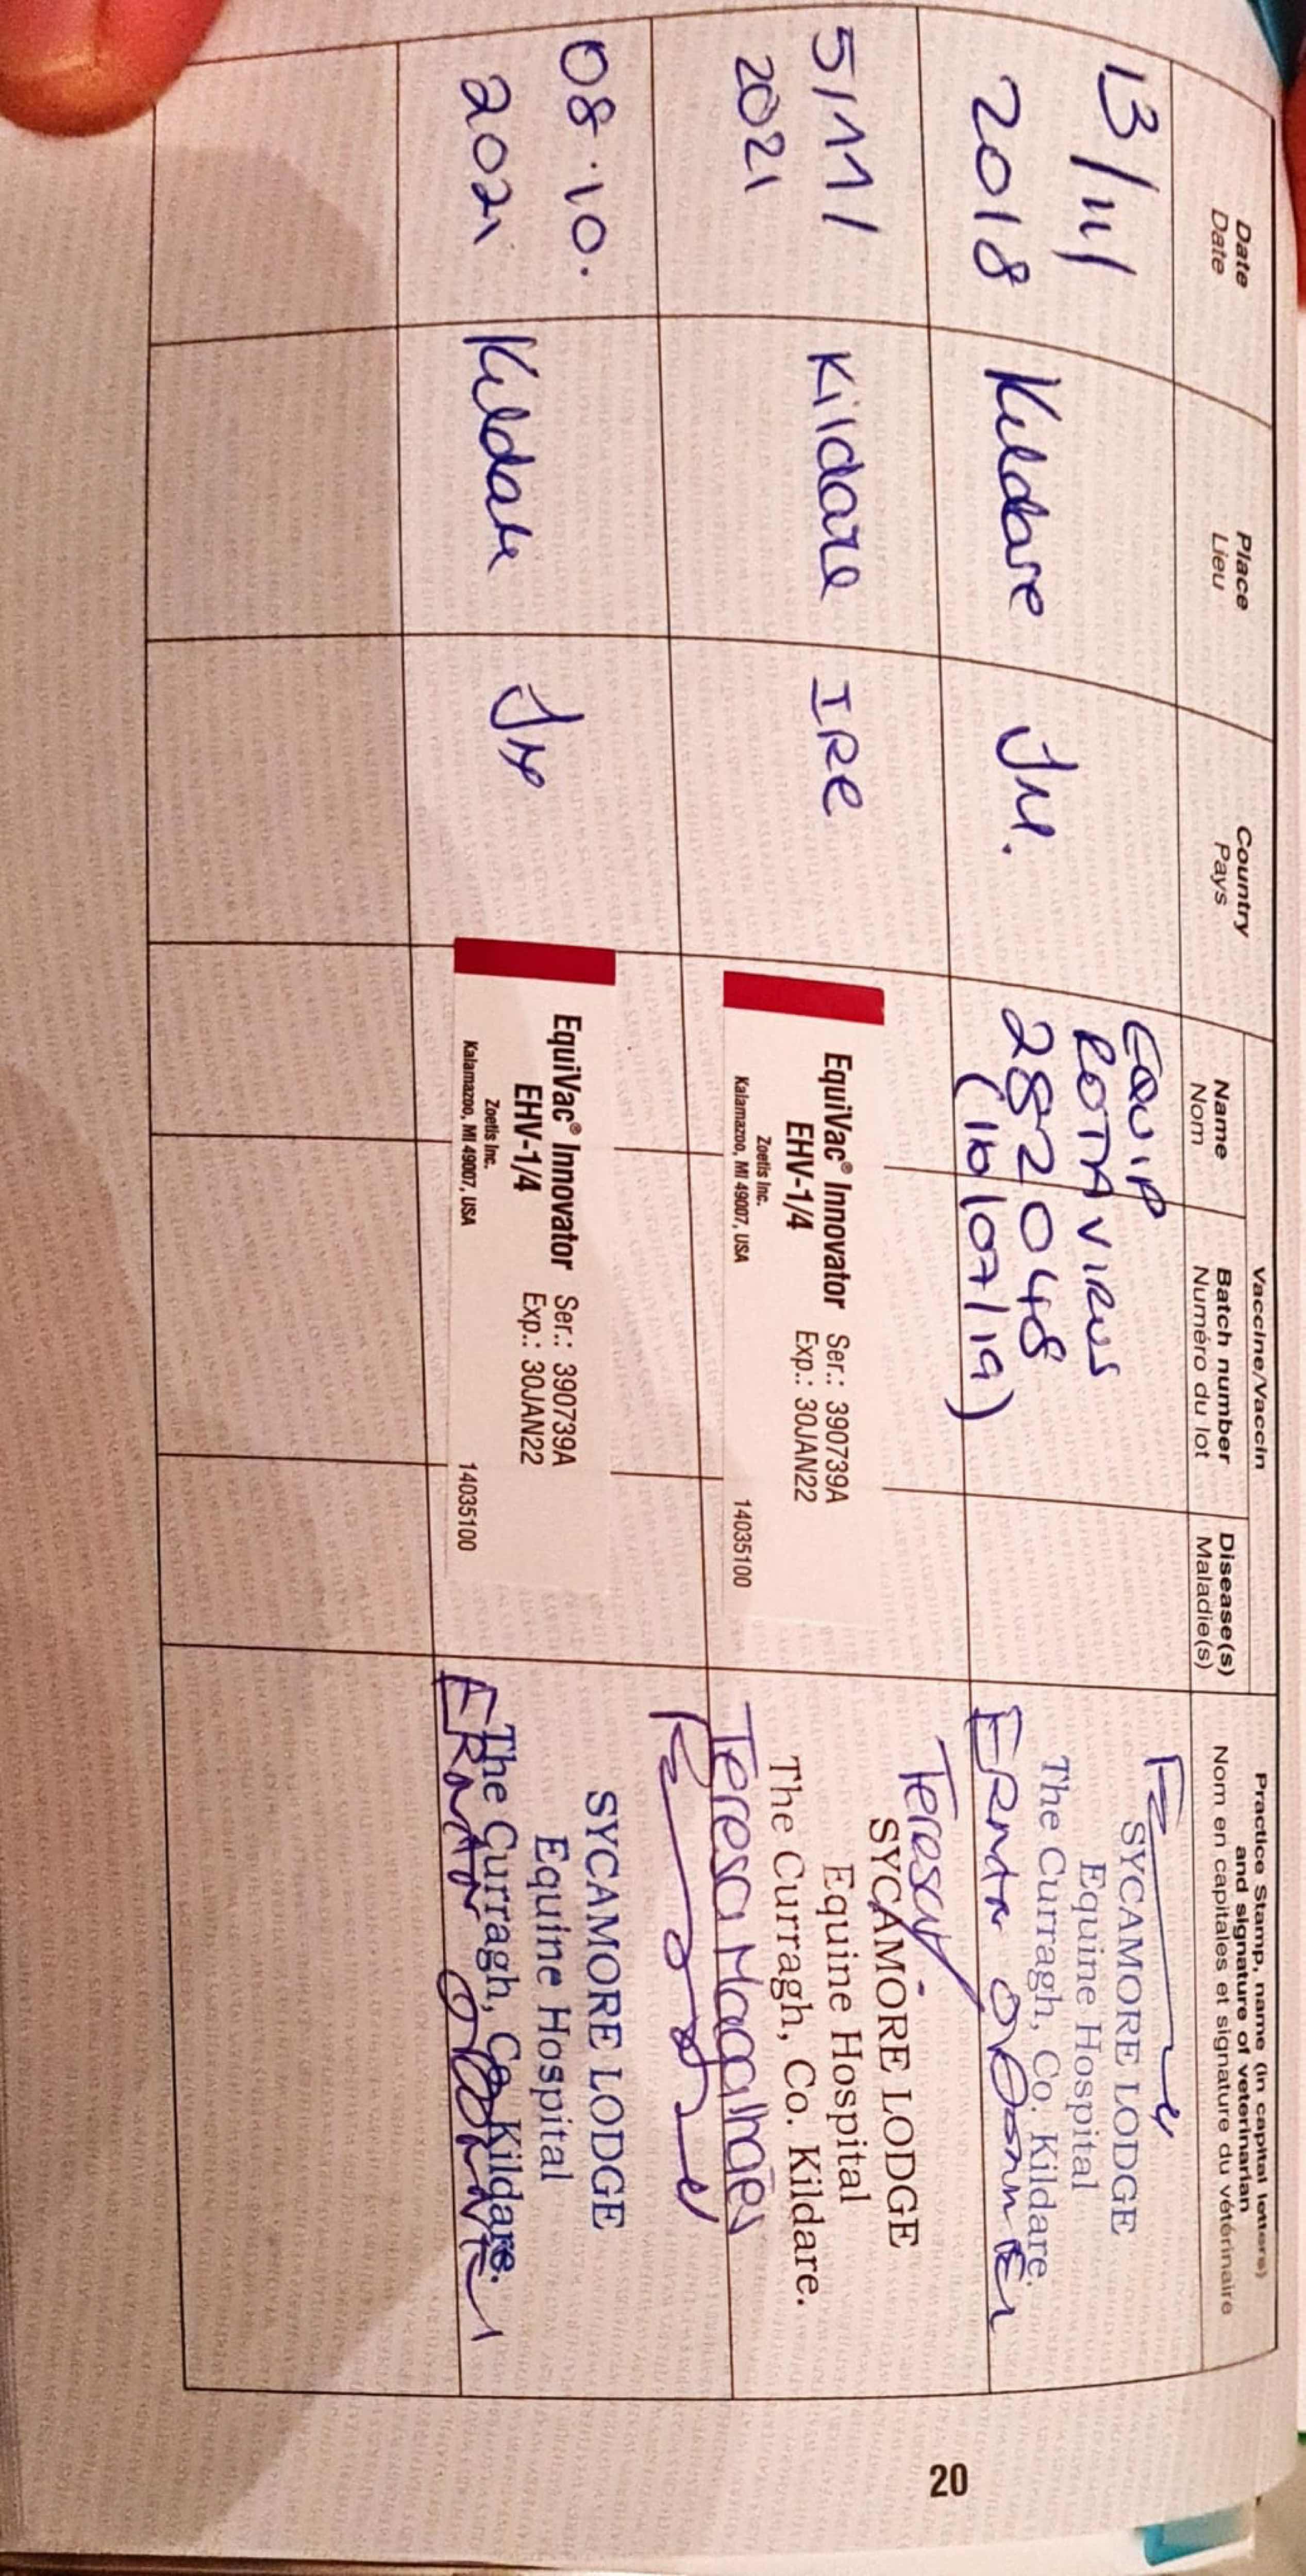 Date
Date
Place
Lieu
Country
Pays
Vaccine/Vaccin
Name
Nom
Batch number
Numéro du lot
Disease(s)
Maladie(s)
Practice Stamp, name (in capital letters)
and signature of veterinarian
Nom en capitales et signature du vétérinaire
13/11/
2018
Kildare
EQUIP
ROTAVIRUS
282048
(16/07/19)
SYCAMORE LODGE
Equine Hospital
The Curragh, Co. Kildare.
5/11/
2021
Kildare
IRE
EquiVac® Innovator
EHV-1/4
Zoetis Inc.
Kalamazoo, MI 49007, USA
Ser.: 390739A
Exp.: 30JAN22
14035100
Teresa
SYCAMORE LODGE
Equine Hospital
The Curragh, Co. Kildare.
Teresa Magalhães
08.10.
2021
Kildare
EquiVac® Innovator
EHV-1/4
Zoetis Inc.
Kalamazoo, MI 49007, USA
Ser.: 390739A
Exp.: 30JAN22
14035100
SYCAMORE LODGE
Equine Hospital
The Curragh, Co. Kildare.
20